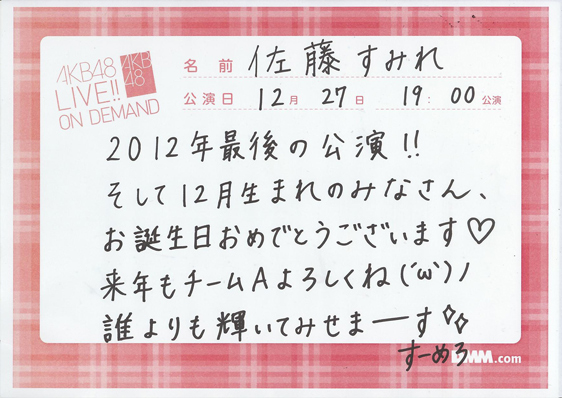 AKB48
LIVE!!
ON DEMAND
AKB
48
名 前 佐藤すみれ
公演日 12月 27日 19:00公演
2012年最後の公演!!
そして12月生まれのみなさん、
お誕生日おめでとうございます♡
来年もチームAよろしくね(´ω`)ノ
誰よりも輝いてみせまーす
すーめろ
DMM.com